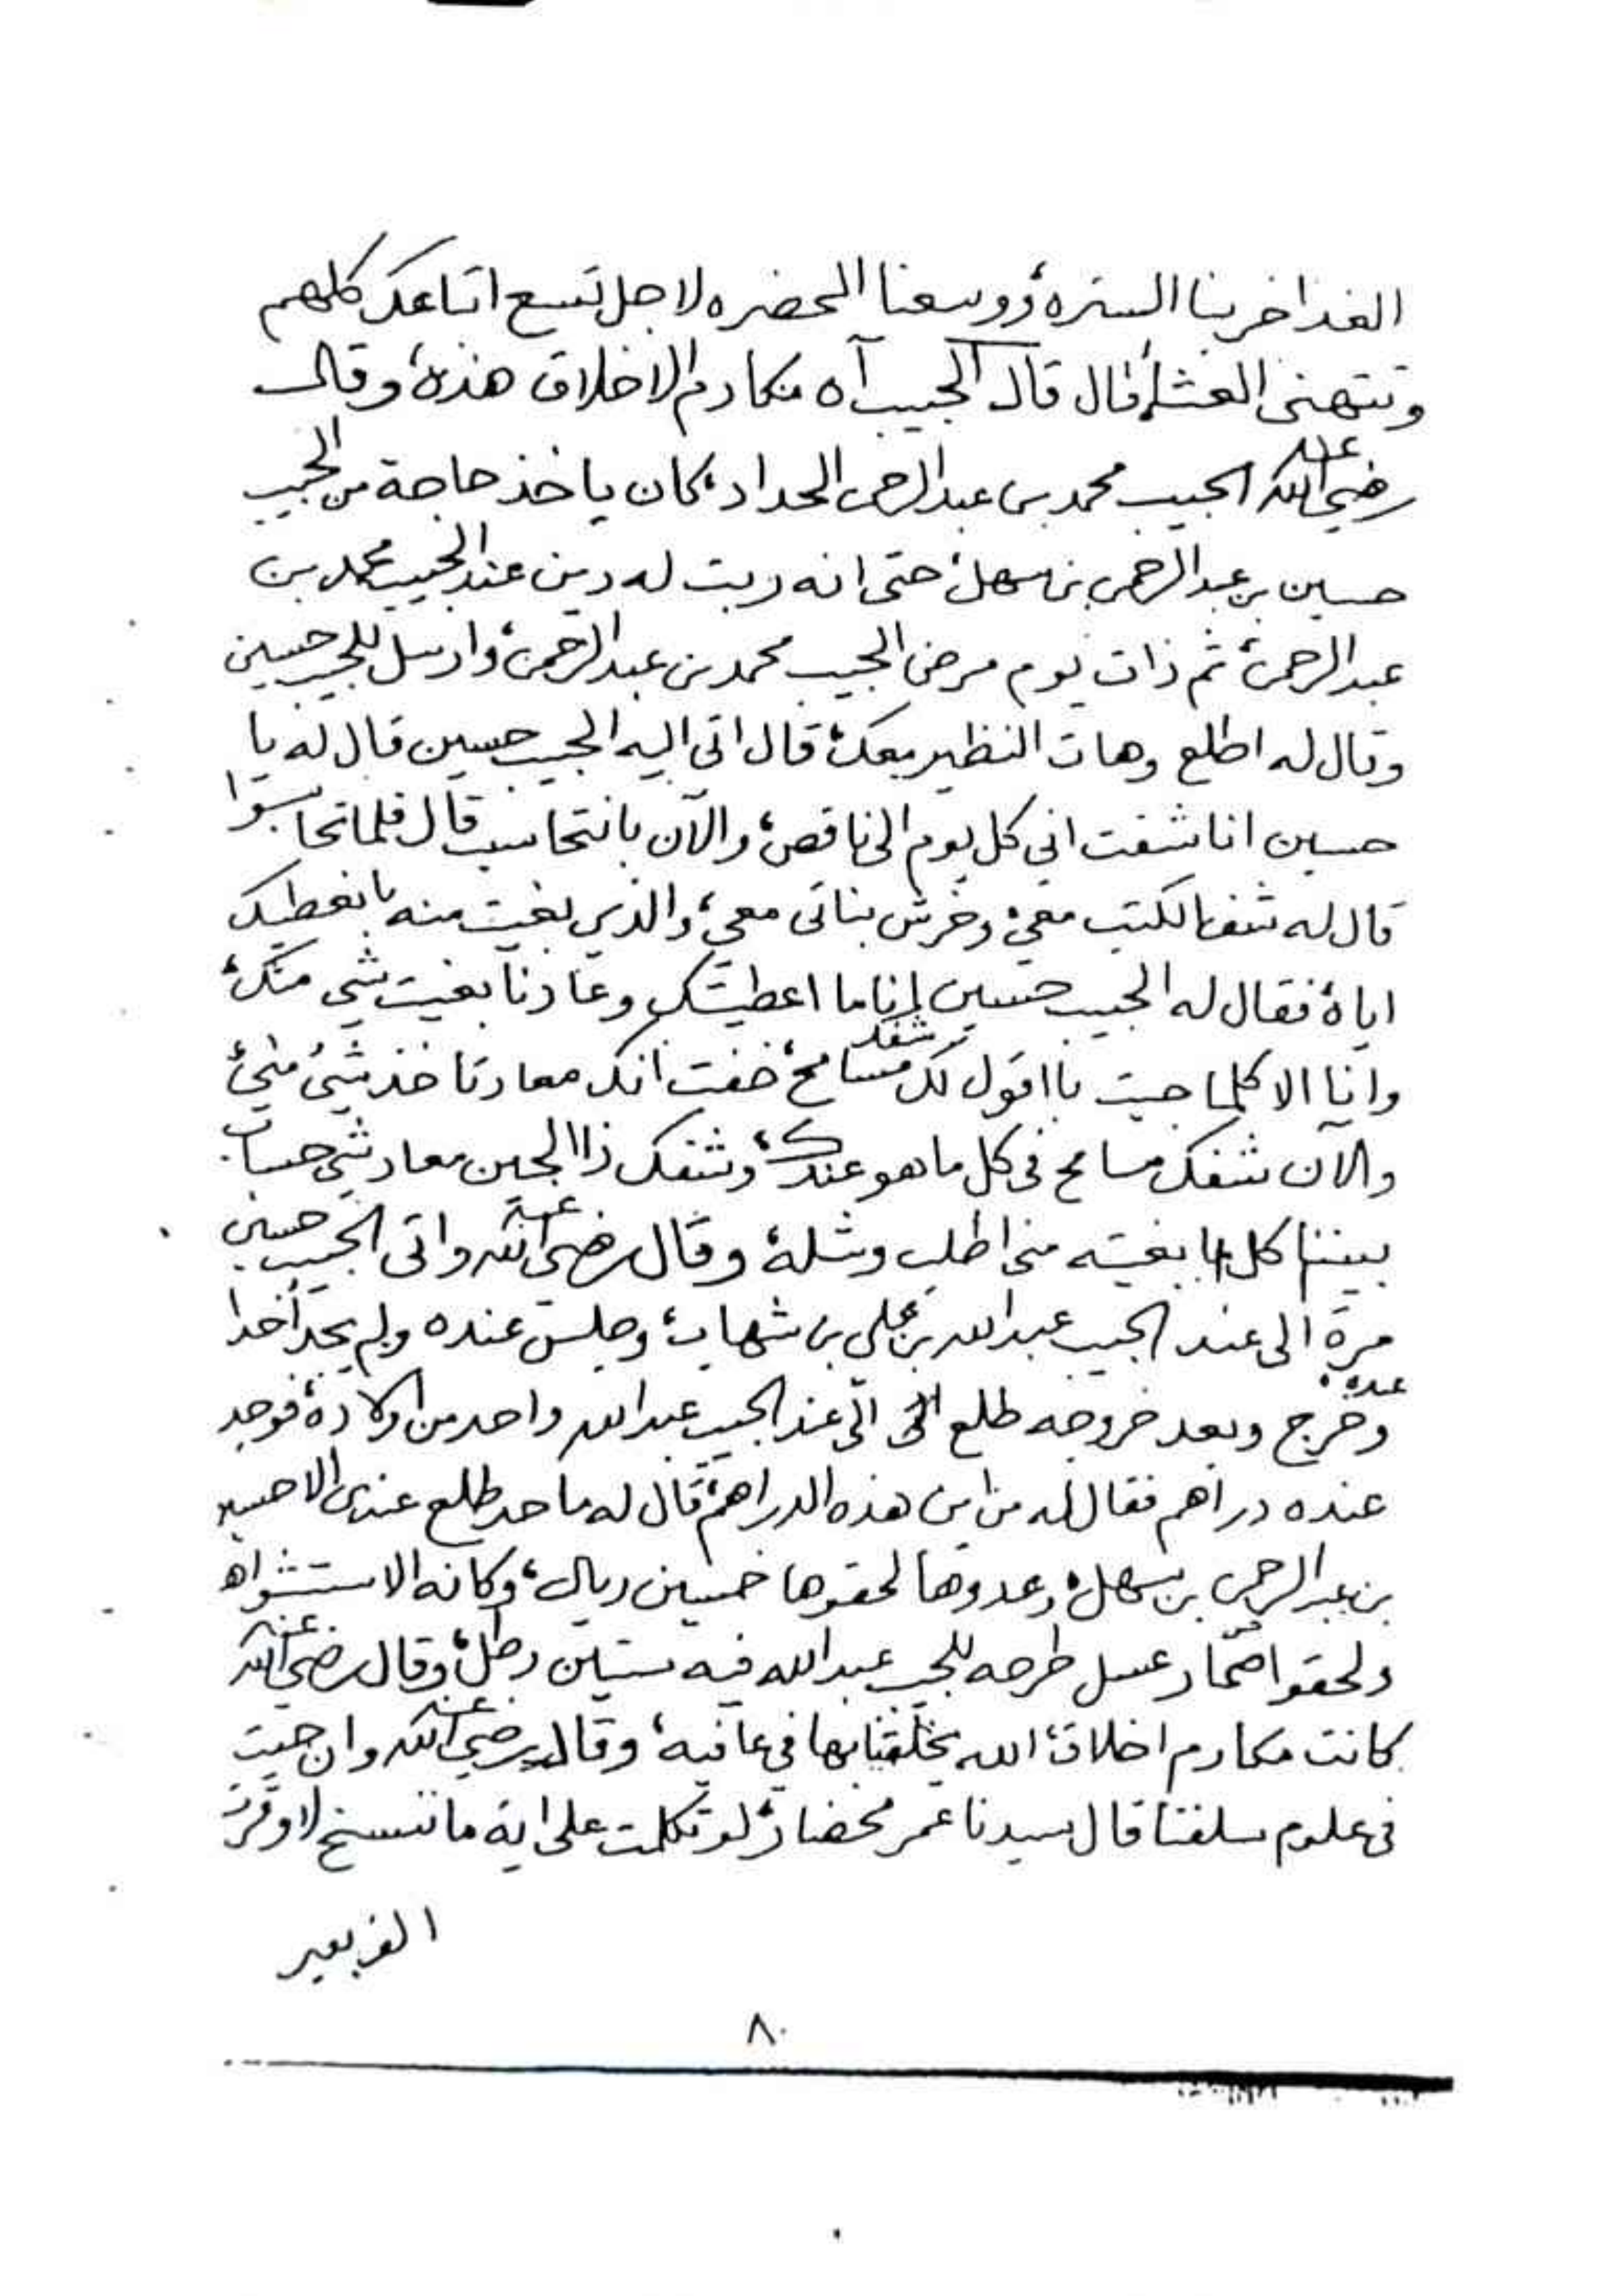 الغدا خربنا السترة، ووسعنا المحضره لاجل تسع اتباعك كلهم
وتتهنى العشاء، قال قال الحبيب آه مكارم الاخلاق هذه، وقال
رضي الله عنه الحبيب محمد بن عبدالرحمن الحداد، كان ياخذ حاجة من الحبيب
حسين بن عبدالرحمن بن سهل، حتى انه ربت له دين عند الحبيب محمد بن
عبدالرحمن، ثم ذات يوم مرض الحبيب محمد بن عبدالرحمن، وارسل للحبيب حسين
وقال له اطلع وهات النظير معك، قال اتى اليه الحبيب حسين قال له يا
حسين انا شفت اني كل يوم الى ناقص، والآن بانتحاسب قال فلما تحاسبوا
قال له شف الكتب معي، وخرش بناتي معي، والذي بغيت منه بانعطيك
اياه، فقال له الحبيب حسين انا ما اعطيتك وعادنا بغيت شي منك،
وانا الا كلما جيت بااقول لك شفك مسامح، خفت انك معاد تاخذ شئ مني،
والآن شفك مسامح في كل ما هو عندك، وشفك ذا الحين معاد شي حساب
بيننا كل ما بغيته مني اطلب وشله، وقال رضي الله عنه واتى الحبيب حسين
مرة الى عند الحبيب عبدالله بن علي بن شهاب، وجلس عنده ولم يجد أحدا
عنده، وخرج وبعد خروجه طلع الى عند الحبيب عبدالله واحد من اولاده، فوجد
عنده دراهم فقال له من اين هذه الدراهم، قال له ما حد طلع عندي الا حسين
بن عبدالرحمن بن سهل، وعدوها لحقوها خمسين ريال، وكانه الا ستشواه
ولحقوا عسل طرحه للحبيب عبدالله فيه ستين رطل، وقال رضي الله عنه
كانت مكارم اخلاق، الله يخلقنا بها في عافيه، وقال رضي الله عنه وان جيت
في علوم سلفنا قال سيدنا عمر محضار، لو تكلمت على اية ما ننسخ لاوقرت
الف بعير
٨٠